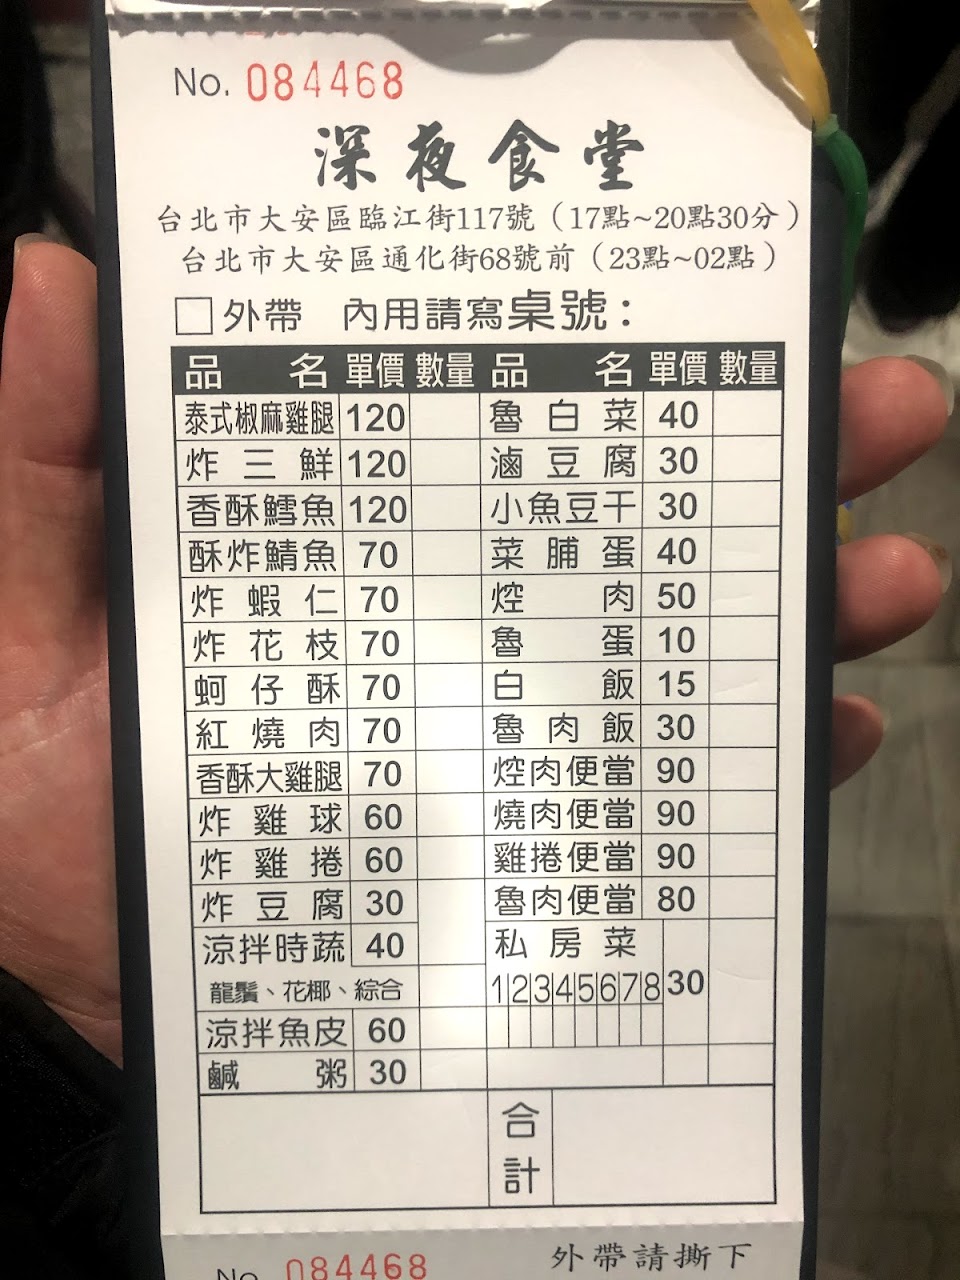 No. 084468
深夜食堂
台北市大安區臨江街117號（17點~20點30分）
台北市大安區通化街68號前（23點~02點）
外帶 內用請寫桌號：
品名 單價 數量 品名 單價 數量
泰式椒麻雞腿 120 魯白菜 40
炸三鮮 120 滷豆腐 30
香酥鱈魚 120 小魚豆干 30
酥炸鯖魚 70 菜脯蛋 40
炸蝦仁 70 焢肉 50
炸花枝 70 魯蛋 10
蚵仔酥 70 白飯 15
紅燒肉 70 魯肉飯 30
香酥大雞腿 70 焢肉便當 90
炸雞球 60 燒肉便當 90
炸雞捲 60 雞捲便當 90
炸豆腐 30 魯肉便當 80
涼拌時蔬 40 私房菜
龍鬚、花椰、綜合 1 2 3 4 5 6 7 8 30
涼拌魚皮 60
鹹粥 30
合計
No. 084468 外帶請撕下